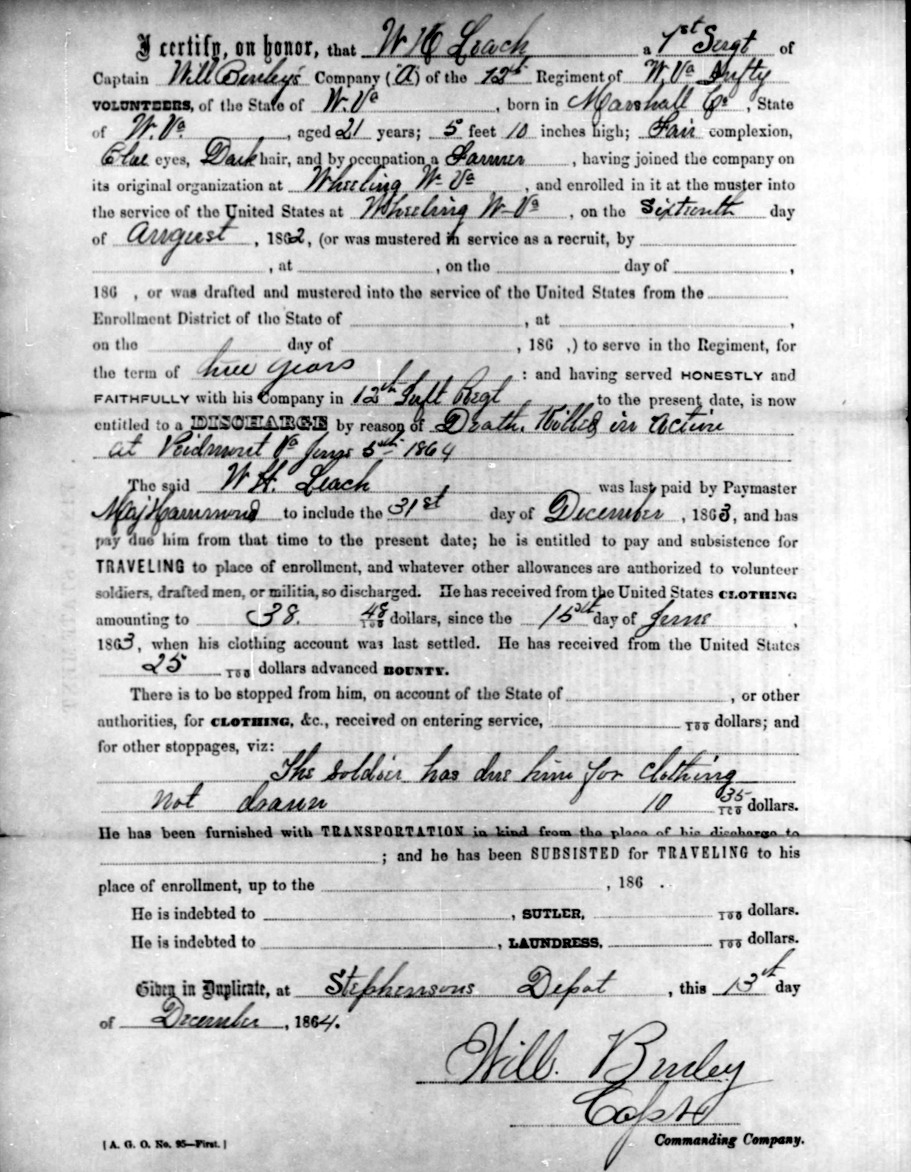 I certify, on honor, that W H Leach a 1st Sergt of
Captain Will Burley's Company (A) of the 12th Regiment of W. Va Infty
VOLUNTEERS, of the State of W. Va, born in Marshall Co, State
of W. Va, aged 21 years; 5 feet 10 inches high; Fair complexion,
Blue eyes, Dark hair, and by occupation a Farmer, having joined the company on
its original organization at Wheeling W Va, and enrolled in it at the muster into
the service of the United States at Wheeling W Va, on the Sixteenth day
of August, 1862, (or was mustered in service as a recruit, by
, at , on the day of ,
186 , or was drafted and mustered into the service of the United States from the
Enrollment District of the State of , at ,
on the day of , 186 ,) to serve in the Regiment, for
the term of three years : and having served HONESTLY and
FAITHFULLY with his Company in 12th Inft Regt to the present date, is now
entitled to a DISCHARGE by reason of Death. Killed in action
at Piedmont Va June 5th 1864
The said W. H. Leach was last paid by Paymaster
Maj Hammond to include the 31st day of December, 1863, and has
pay due him from that time to the present date; he is entitled to pay and subsistence for
TRAVELING to place of enrollment, and whatever other allowances are authorized to volunteer
soldiers, drafted men, or militia, so discharged. He has received from the United States CLOTHING
amounting to 38. 48/100 dollars, since the 15th day of June ,
1863, when his clothing account was last settled. He has received from the United States
25 /100 dollars advanced BOUNTY.
There is to be stopped from him, on account of the State of , or other
authorities, for CLOTHING, &c., received on entering service, /100 dollars; and
for other stoppages, viz:
The soldier has due him for clothing
not drawn 10 35/100 dollars.
He has been furnished with TRANSPORTATION in kind from the place of his discharge to
; and he has been SUBSISTED for TRAVELING to his
place of enrollment, up to the , 186 .
He is indebted to , SUTLER, /100 dollars.
He is indebted to , LAUNDRESS, /100 dollars.
Given in Duplicate, at Stephensons Depot, this 13th day
of December, 1864.
Will. Burley
Capt
Commanding Company.
[ A. G. O. No. 95—First. ]